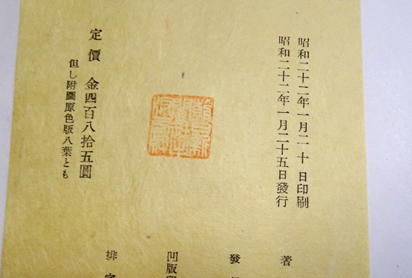 昭和二十二年一月二十日印刷
昭和二十二年一月二十五日發行
定價 金四百八拾五圓
但し附圖原色版八葉とも
著
發
凹版
排